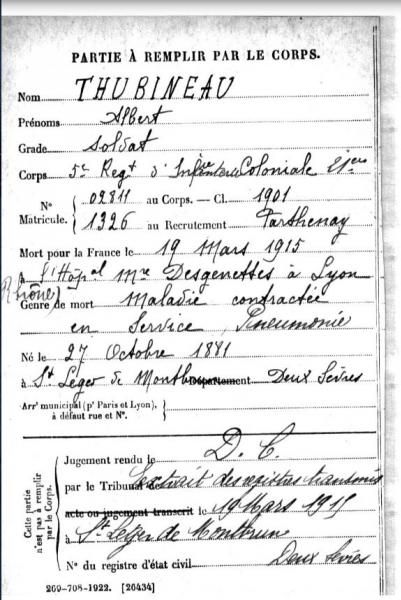 PARTIE À REMPLIR PAR LE CORPS.
Nom THUBINEAU
Prénoms Albert
Grade Soldat
Corps 5e Regt d'Infanterie Coloniale
N° Matricule. { 02811 au Corps. — Cl. 1901
1326 au Recrutement Parthenay
Mort pour la France le 19 Mars 1915
à l'Hôpal Mre Desgenettes à Lyon
(Rhône)
Genre de mort Maladie contractée
en Service, Pneumonie
Né le 27 Octobre 1881
à St Léger de Montbrun Département Deux Sèvres
Arrt municipal (pr Paris et Lyon), à défaut rue et N°. }
Cette partie n'est pas à remplir par le Corps.
Jugement rendu le D. C.
par le Tribunal de Extrait des registres transmis
acte ou jugement transcrit le 19 Mars 1915
à St Léger de Montbrun
Deux Sèvres
N° du registre d'état civil
209-708-1922. [26434]